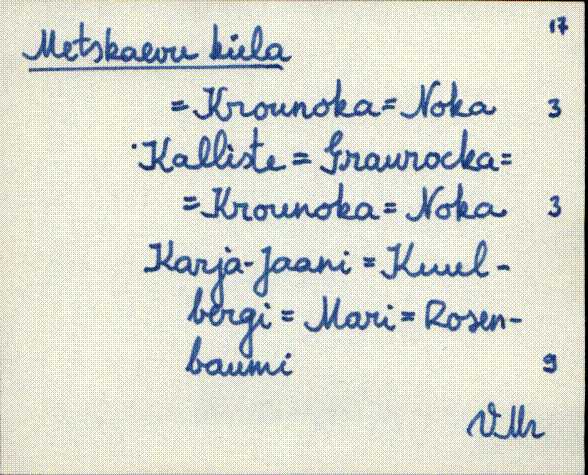 17
Metskaevu küla
= Krounoka = Noka 3
Kalliste = Graurocka =
= Krounoka = Noka 3
Karja-Jaani = Kuul-
bergi = Mari = Rosen-
baumi 9
VMr